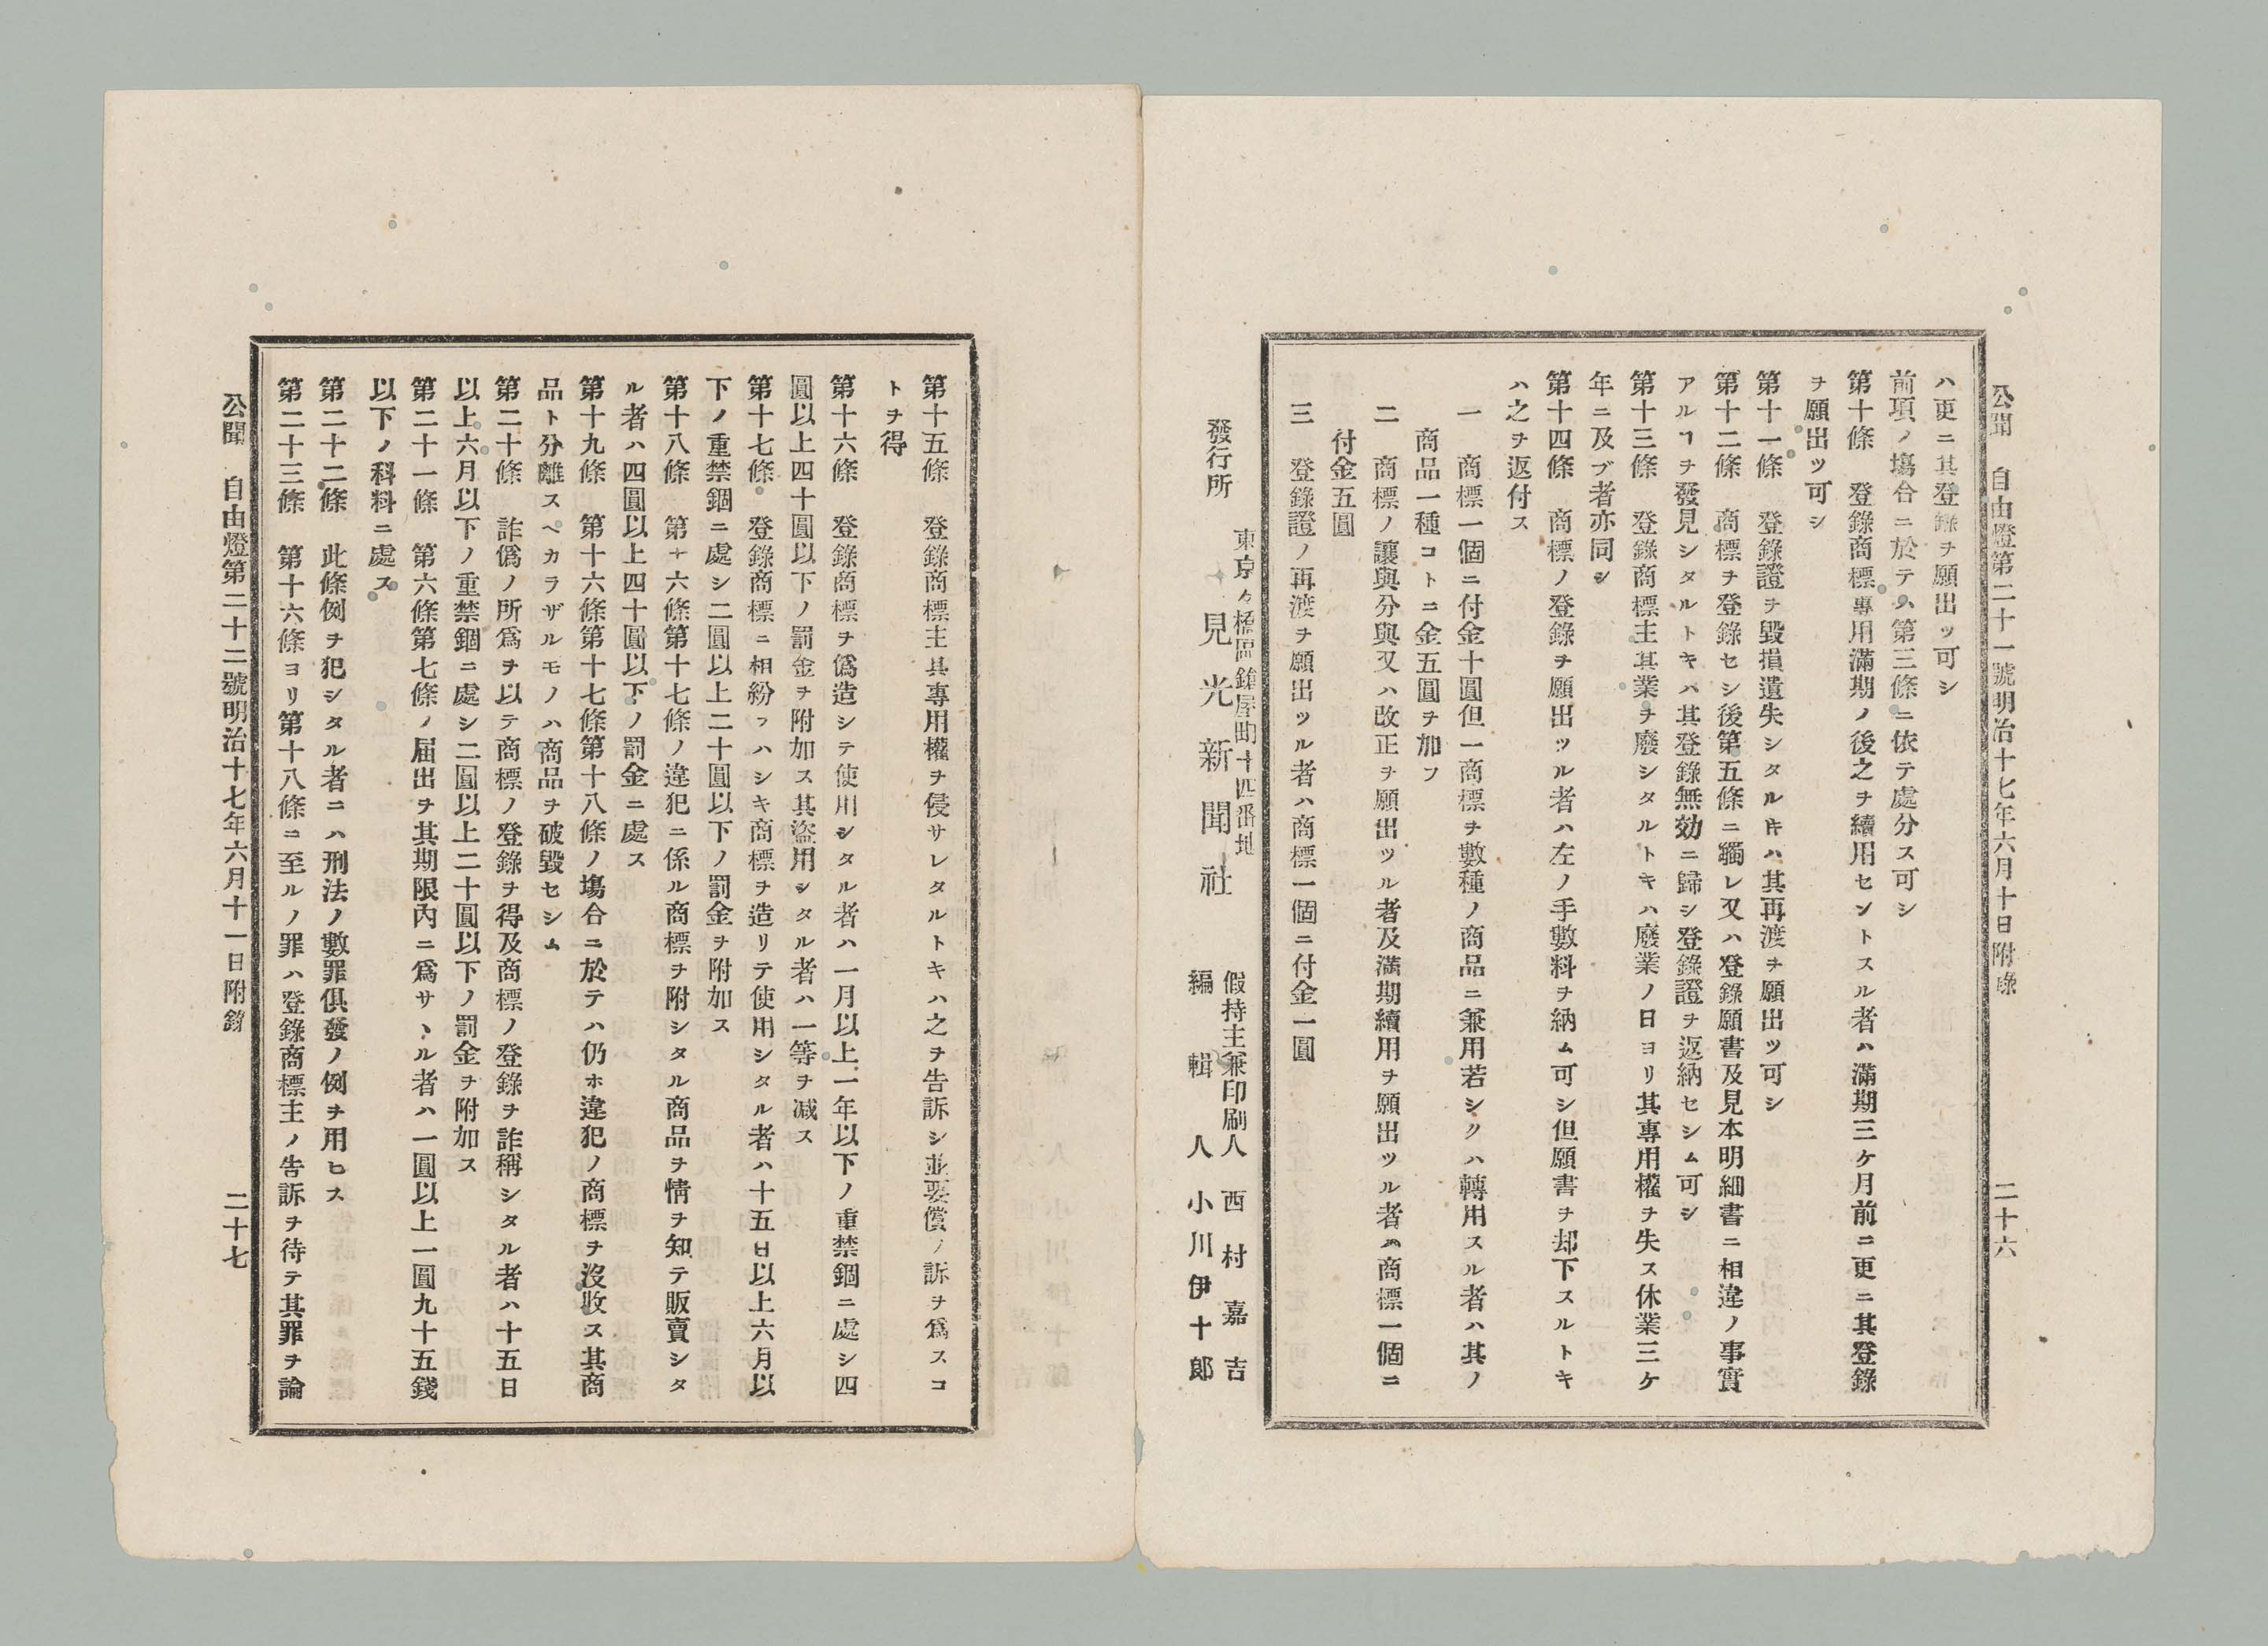 公聞　自由燈第二十一號明治十七年六月十日附錄　二十六
ハ更ニ其登錄ヲ願出ツ可シ
前項ノ塲合ニ於テハ第三條ニ依テ處分ス可シ
第十條　登錄商標專用滿期ノ後之ヲ續用セントスル者ハ滿期三ケ月前ニ更ニ其登錄
ヲ願出ツ可シ
第十一條　登錄證ヲ毀損遺失シタルキハ其再渡ヲ願出ツ可シ
第十二條　商標ヲ登錄セシ後第五條ニ觸レ又ハ登錄願書及見本明細書ニ相違ノ事實
アルヿヲ發見シタルトキハ其登錄無効ニ歸シ登錄證ヲ返納セシム可シ
第十三條　登錄商標主其業ヲ廢シタルトキハ廢業ノ日ヨリ其專用權ヲ失ス休業三ケ
年ニ及ブ者亦同シ
第十四條　商標ノ登錄ヲ願出ツル者ハ左ノ手數料ヲ納ム可シ但願書ヲ却下スルトキ
ハ之ヲ返付ス
一　商標一個ニ付金十圓但一商標ヲ數種ノ商品ニ兼用若シクハ轉用スル者ハ其ノ
商品一種コトニ金五圓ヲ加フ
二　商標ノ讓與分與又ハ改正ヲ願出ツル者及滿期續用ヲ願出ツル者ハ商標一個ニ
付金五圓
三　登錄證ノ再渡ヲ願出ツル者ハ商標一個ニ付金一圓
發行所　東京々橋區鎗屋町十四番地
見光新聞社
假持主兼印刷人　西村嘉吉
編輯人　小川伊十郎
第十五條　登錄商標主其專用權ヲ侵サレタルトキハ之ヲ告訴シ並要償ノ訴ヲ爲スコ
トヲ得
第十六條　登錄商標ヲ僞造シテ使用シタル者ハ一月以上一年以下ノ重禁錮ニ處シ四
圓以上四十圓以下ノ罰金ヲ附加ス其盜用シタル者ハ一等ヲ减ス
第十七條　登錄商標ニ相紛ラハシキ商標ヲ造リテ使用シタル者ハ十五日以上六月以
下ノ重禁錮ニ處シ二圓以上二十圓以下ノ罰金ヲ附加ス
第十八條　第十六條第十七條ノ違犯ニ係ル商標ヲ附シタル商品ヲ情ヲ知テ販賣シタ
ル者ハ四圓以上四十圓以下ノ罰金ニ處ス
第十九條　第十六條第十七條第十八條ノ塲合ニ於テハ仍ホ違犯ノ商標ヲ沒收ス其商
品ト分離スヘカラザルモノハ商品ヲ破毀セシム
第二十條　詐僞ノ所爲ヲ以テ商標ノ登錄ヲ得及商標ノ登錄ヲ詐稱シタル者ハ十五日
以上六月以下ノ重禁錮ニ處シ二圓以上二十圓以下ノ罰金ヲ附加ス
第二十一條　第六條第七條ノ届出ヲ其期限內ニ爲サヽル者ハ一圓以上一圓九十五錢
以下ノ科料ニ處ス
第二十二條　此條例ヲ犯シタル者ニハ刑法ノ數罪俱發ノ例ヲ用ヒス
第二十三條　第十六條ヨリ第十八條ニ至ルノ罪ハ登錄商標主ノ告訴ヲ待テ其罪ヲ論
公聞　自由燈第二十二號明治十七年六月十一日附錄　二十七